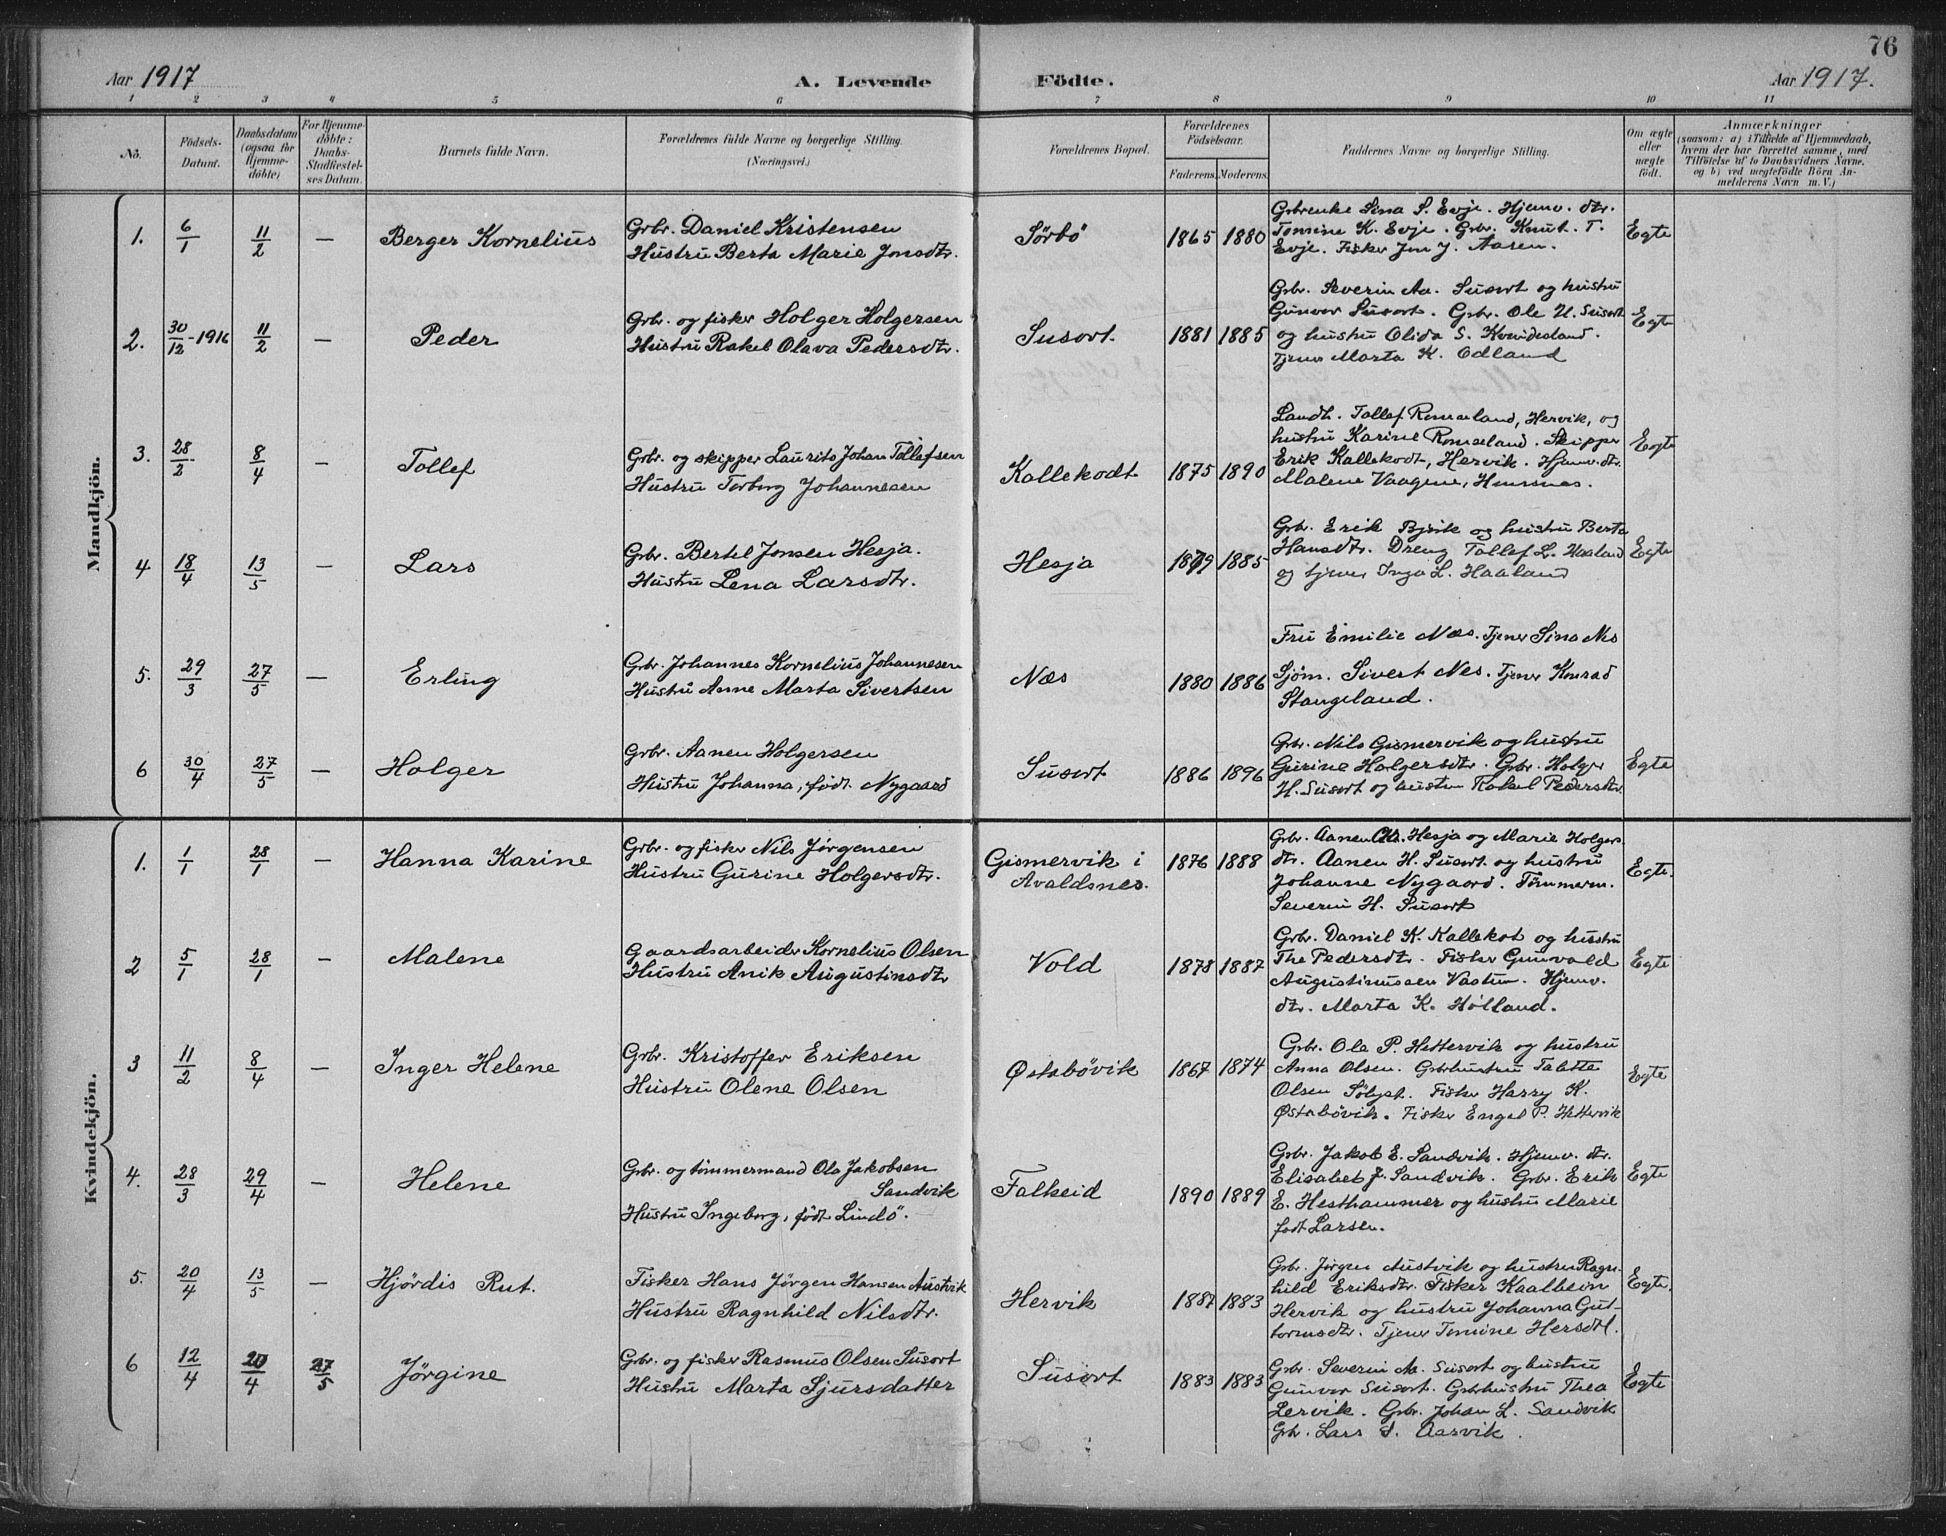 76
Aar 1917 A. Levende Födte. Aar 1917.
1 2 3 4 5 6 7 8 9 10 11
No. Födsels-Datum. Daabsdatum (ogsaa for Hjemmedöbte) For Hjemmedöbte: Daabs-Stadfæstelses Datum. Barnets fulde Navn. Forældrenes fulde Navne og borgerlige Stilling. (Næringsvei.) Forældrenes Bopæl. Forældrenes Födselsaar. Faderens. Moderens. Faddernes Navne og borgerlige Stilling. Om ægte eller uægte födt. Anmærkninger (saasom: a) i Tilfælde af Hjemmedaab, hvem der har forrettet samme, med Tilföielse af to Daabsvidners Navne. og b) ved uægtefödte Börn Anmelderens Navn m. V.)
Mandkjön.
1. 6/1 11/2 — Berger Kornelius
Grbr. Daniel Kristensen
Hustru Berta Marie Jonsdtr.
Sörbö 1865 1880
Grbrenke Sina S. Evje. Hjemv. dtr.
Tomine K. Evje. Grbr. Knut. T.
Evje. Fisker Jon J. Aasen.
Egte
2. 30/12-1916 11/2 — Peder
Grbr. og fisker Holger Holgersen
Hustru Rakel Olava Pedersdtr.
Susort 1881 1885
Grbr. Severin Aa. Susort og hustru
Gunvor Susort. Grbr. Ole H. Susort
og hustru Olida S. Kvindesland.
Tjener Marta K. Odland
Egte
3. 28/2 8/4 — Tollef
Grbr. og skipper Laurits Johan Tollefsen
Hustru Torborg Johannesen
Kallekodt 1875 1890
Landh. Tollef Romseland, Hervik, og
hustru Karine Romseland. Skipper
Erik Kallekodt, Hervik. Hjemv. dtr.
Malene Vaagene,
Egte
4 18/4 13/5 — Lars
Grbr. Bertel Jonsen Hesja.
Hustru Lena Larsdtr.
Hesja 1879 1885
Grbr. Erik Bjsvik og hustru Berta
Hansdtr. Dreng Tollef L. Haaland
og tjener Inga L. Haaland
Egte
5. 29/3 27/5 — Erling
Grbr. Johannes Kornelius Johannesen
Hustru Anne Marta Sivertsen
Næs 1880 1886
Fru Emilie Næs. Tjener Sina Nes
Sjöm. Sivert Nes. Tjener Konrad
Stangeland.
6 30/4 27/5 — Holger
Grbr. Aanen Holgersen
Hustru Johanna, födt Nygaard
Susort 1886 1896
Grbr. Nils Gismervik og hustru
Gurine Holgersdtr. Grbr. Holger
H. Susort og hustru Rakel Pedersdtr.
Egte
Kvindekjön.
1. 1/1 28/1 — Hanna Karine
Grbr. og fisker Nils Jørgensen
Hustru Gurine Holgersdtr.
Gismervik i
Avaldsnes.
1876 1888
Grbr. Aanen Chr. Hesja og Marie Holgers
dtr. Aanen H. Susort og hustru
Johanne Nygaard. Tömmerm.
Severin H. Susort
Egte.
2 5/1 28/1 — Malene
Gaardsarbeider Kornelius Olsen
Hustru Anik Augustinsdtr
Vold 1878 1887
Grbr. Daniel K. Kallekot og hustru
Thea Pedersdtr. Fisker Gunvald
Augustinussen Vastun. Hjemv.
dtr. Marta K. Hólland.
Egte
3 11/2 8/4 — Inger Helene
Grbr. Kristoffer Eriksen
Hustru Olene Olsen
Østabövik 1867 1874
Grbr. Ole P. Hettervik og hustru
Anna Olsen. Grbrhustru Talette
Olsen Sölyst. Fisker Harry K.
Østabövik. Fisker Engel P. Hettervik
Egte
4. 28/3 29/4 — Helene
Grbr. og tömmermand Ola Jakobsen
Sandvik
Hustru Ingeborg, födt Lindö.
Falkeid 1890 1889
Grbr. Jakob E. Sandvik. Hjemv. dtr.
Elisabet J. Sandvik. Grbr. Erik
E. Hesthammer og hustru Marie
födt Larsen.
Egte
5. 20/4 13/5 — Hjördis Rut.
Fisker Hans Jørgen Hansen Austvik
Hustru Ragnhild Nilsdtr.
Hervik 1887 1883
Grbr. Jørgen Austvik og hustru Ragn
hild Eriksdtr. Fisker Kaalbein
Hervik og hustru Johanna Gut-
tormsdtr. Tjener Tomine
Egte.
6 12/4 20/4 27/5 Jørgine
Grbr. og fisker Rasmus Olsen Susort
Hustru Marta Sjursdatter
Susort 1883 1883
Grbr. Severin Aa. Susort og hustru
Gunvor Susort. Grbrhustru Thea
Lervik. Grbr. Johan L. Sandvik
Grbr. Lars S. Aasvik.
Egte